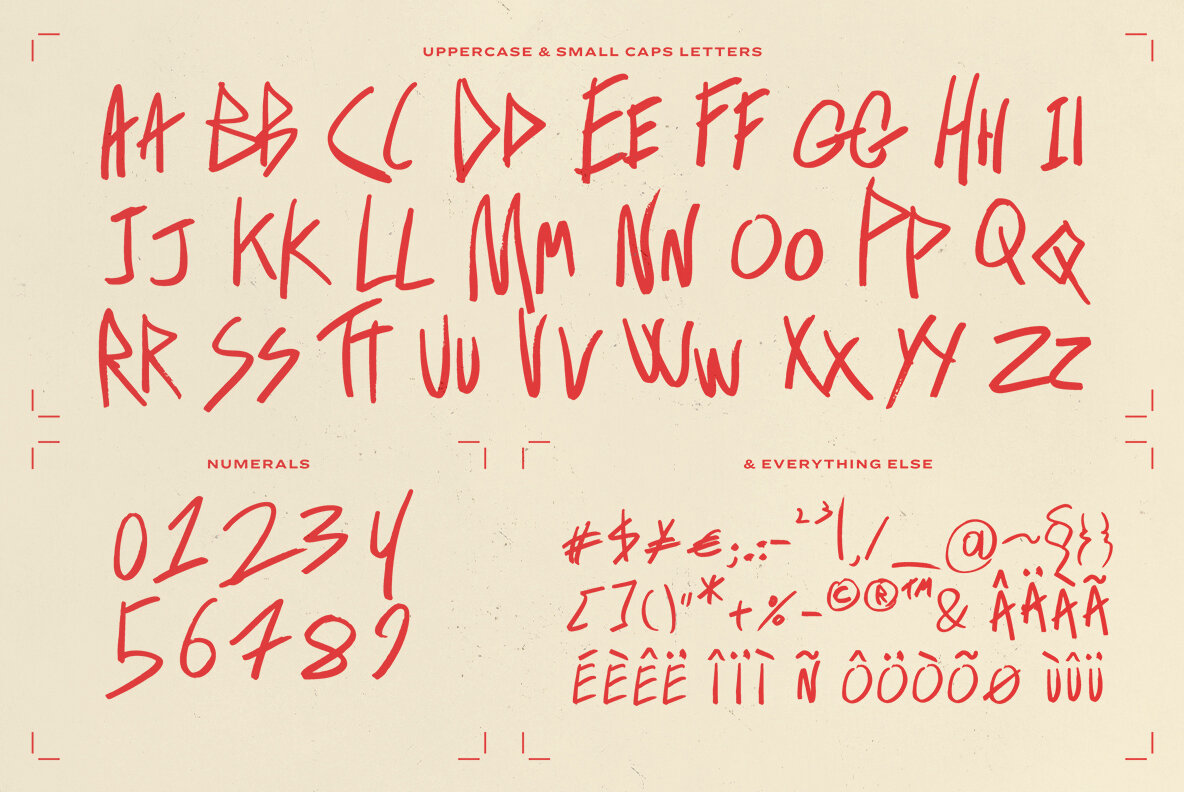 UPPERCASE & SMALL CAPS LETTERS
AA BB CC DD EE FF GG HH II
JJ KK LL MM NN OO PP QQ
RR SS TT UU VV WW XX YY ZZ
NUMERALS
01234
56789
& EVERYTHING ELSE
#$¥€;.:-²³|,/_@~§}}
[]()"*+%-©®™&ÂÄÀÃ
ÉÈÊË ÎÏÌ Ñ ÔÖÒÕØ ÙÛÜ